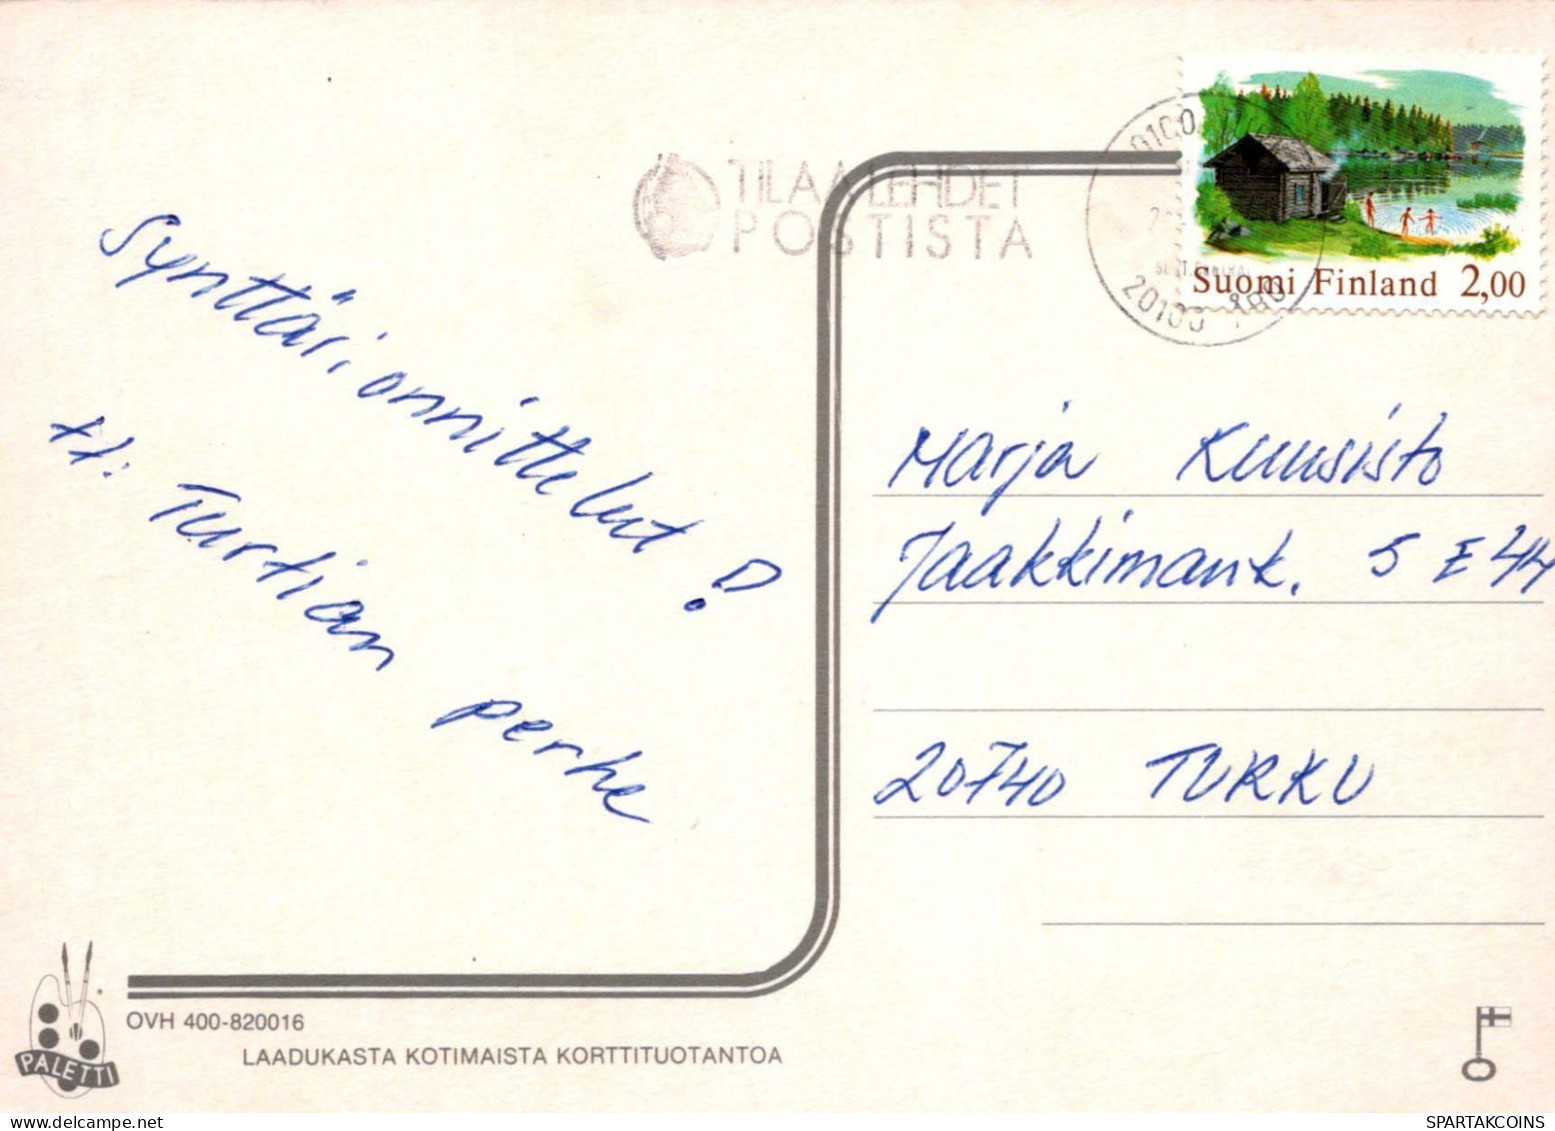 TILAA LEHDET
POSTISTA
20100
Suomi Finland 2,00
Synttäri onnittelut!
Turtian perhe
Marja Kuusisto
Jaakkimank. 5 E 44
20740 TURKU
PALETTI
OVH 400-820016
LAADUKASTA KOTIMAISTA KORTTITUOTANTOA
www.delcampe.net
SPARTAKCOINS